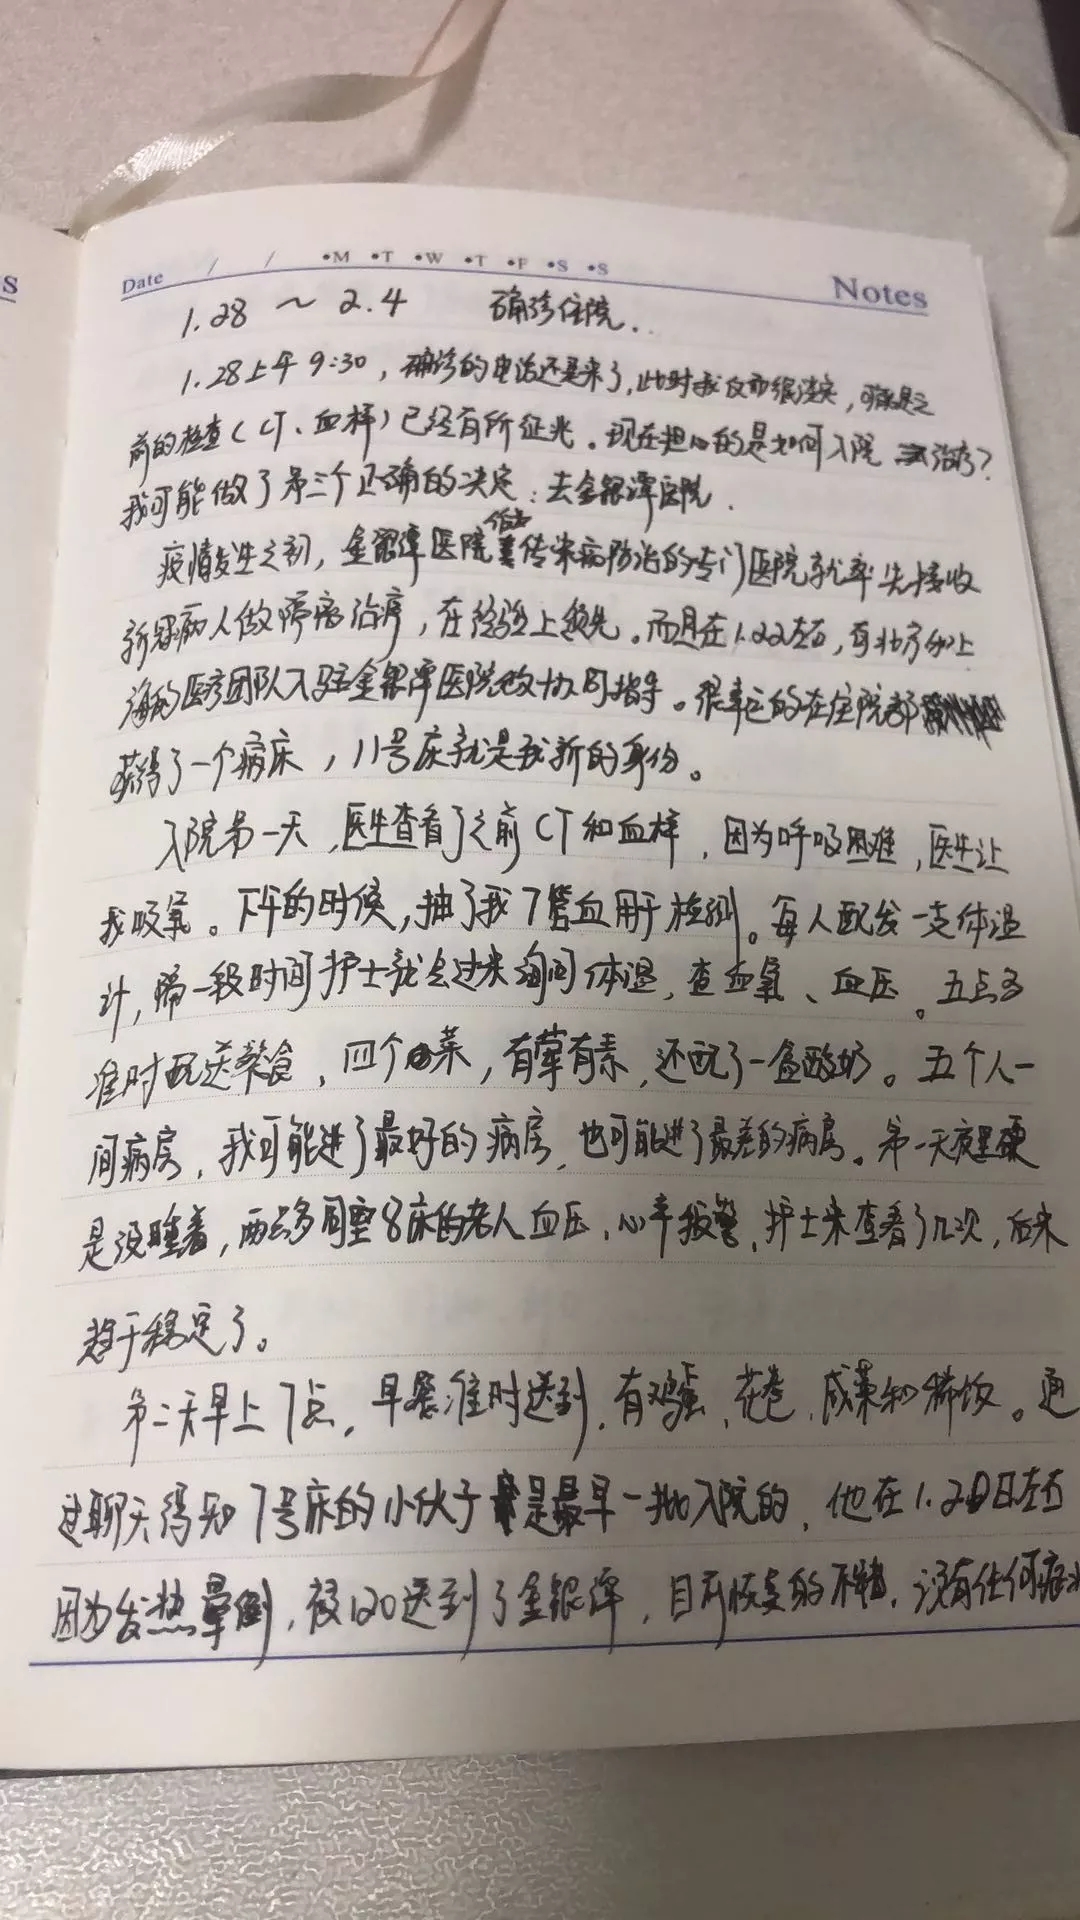 s
Date / / •M •T •W •T •F •S •S Notes
1.28 ~ 2.4 确诊住院.
1.28上午9:30，确诊的电话还是来了，此时我反而很淡定，可能是之
前的检查（CT、血样）已经有所征兆。现在担心的是如何入院治疗？
我可能做了第三个正确的决定：去金银潭医院．
疫情发生之初，金银潭医院作为传染病防治的专门医院就率先接收
新冠病人做隔离治疗，在经验上领先。而且在1.22左右，有北京和上
海的医疗团队入驻金银潭医院做协同指导。很幸运的在住院部
获得了一个病床，11号床就是我新的身份。
入院第一天，医生查看了之前CT和血样，因为呼吸困难，医生让
我吸氧。下午的时候，抽了我7管血用于检测。每人配发一支体温
计，隔一段时间护士就会过来询问体温，查血氧、血压。五点多
准时配送餐食，四个菜，有荤有素，还配了一盒酸奶。五个人一
间病房，我可能进了最好的病房，也可能进了最差的病房。第一天夜里硬
是没睡着，两点多同室8床的老人血压、心率报警，护士来查看了几次，后来
趋于稳定了。
第二天早上7点，早餐准时送到，有鸡蛋、花卷、咸菜和稀饭。通
过聊天得知7号床的小伙子是最早一批入院的，他在1.20日左右
因为发热晕倒，被120送到了金银潭，目前恢复的不错，没有任何症状